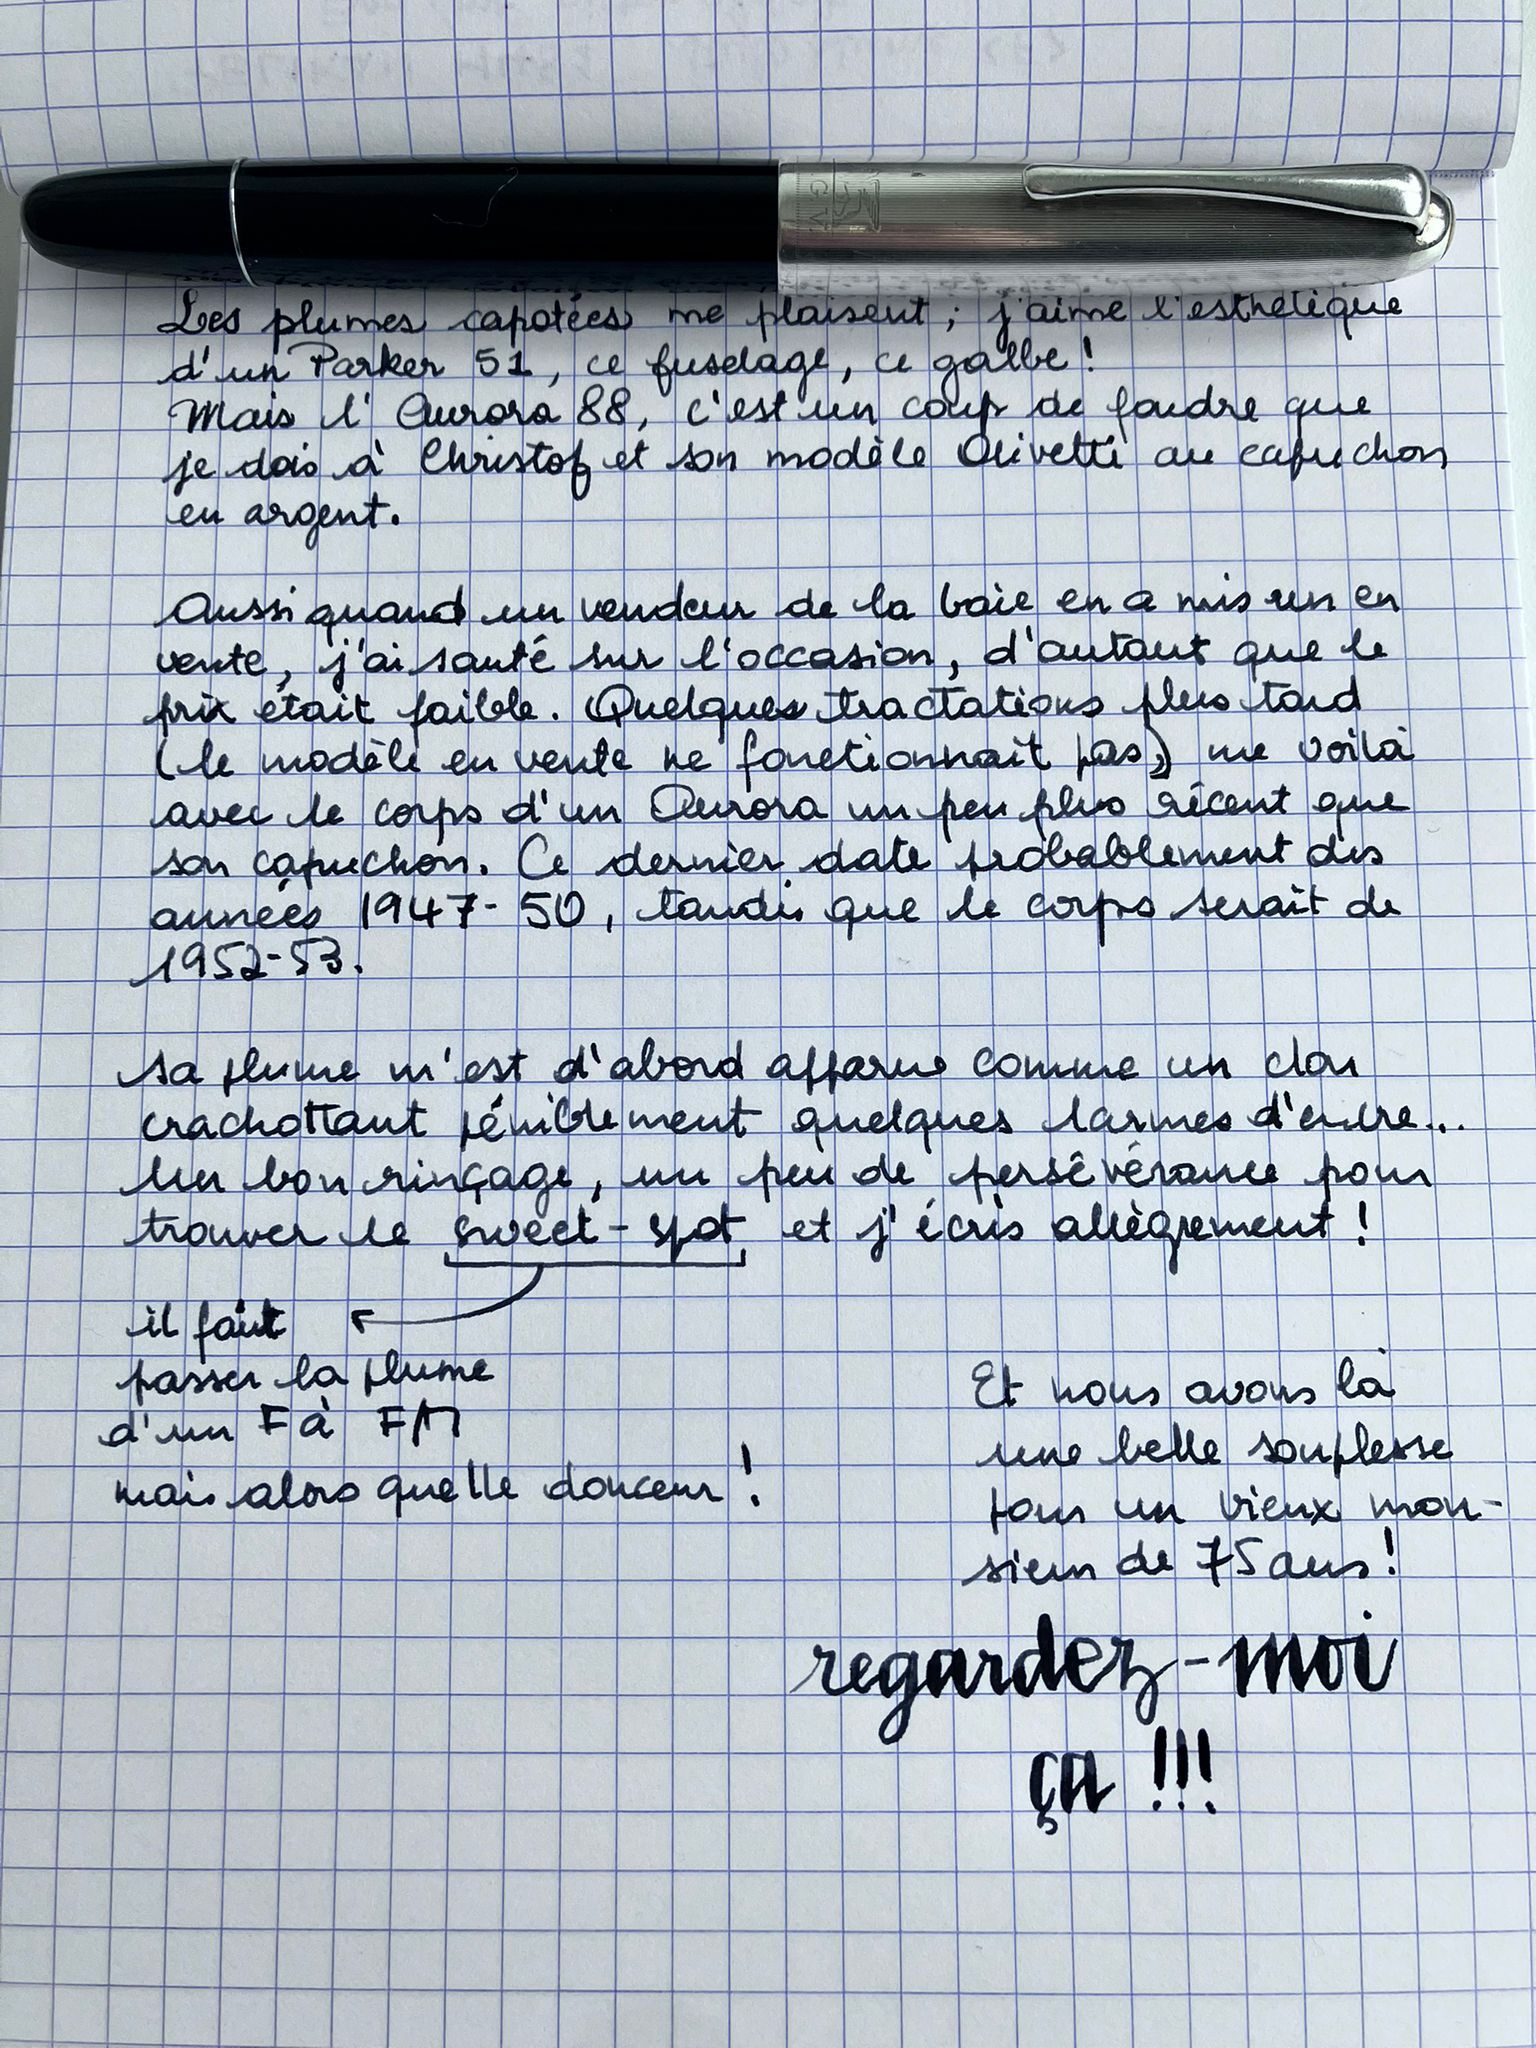 G.V.
Les plumes capotées me plaisent ; j'aime l'esthétique
d'un Parker 51, ce fuselage, ce galbe !
Mais l'Aurora 88, c'est un coup de foudre que
je dois à Christof et son modèle Olivetti au capuchon
en argent.
Aussi quand un vendeur de la baie en a mis un en
vente, j'ai sauté sur l'occasion, d'autant que le
prix était faible. Quelques tractations plus tard
(le modèle en vente ne fonctionnait pas,) me voilà
avec le corps d'un Aurora un peu plus récent que
son capuchon. Ce dernier date probablement des
années 1947-50, tandis que le corps serait de
1952-53.
Sa plume m'est d'abord apparue comme un clou
crachottant péniblement quelques larmes d'encre...
Un bon rinçage, un peu de persévérance pour
trouver le sweet-spot et j'écris allègrement !
il faut
passer la plume
d'un F à FM
mais alors quelle douceur !
Et nous avons là
une belle souplesse
pour un vieux mon-
sieur de 75 ans !
regardez-moi
ça !!!